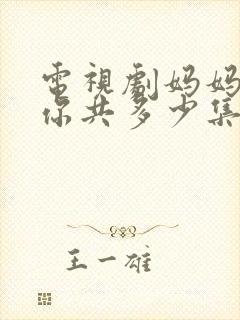 電視劇妈妈
你共多少集
王一雄